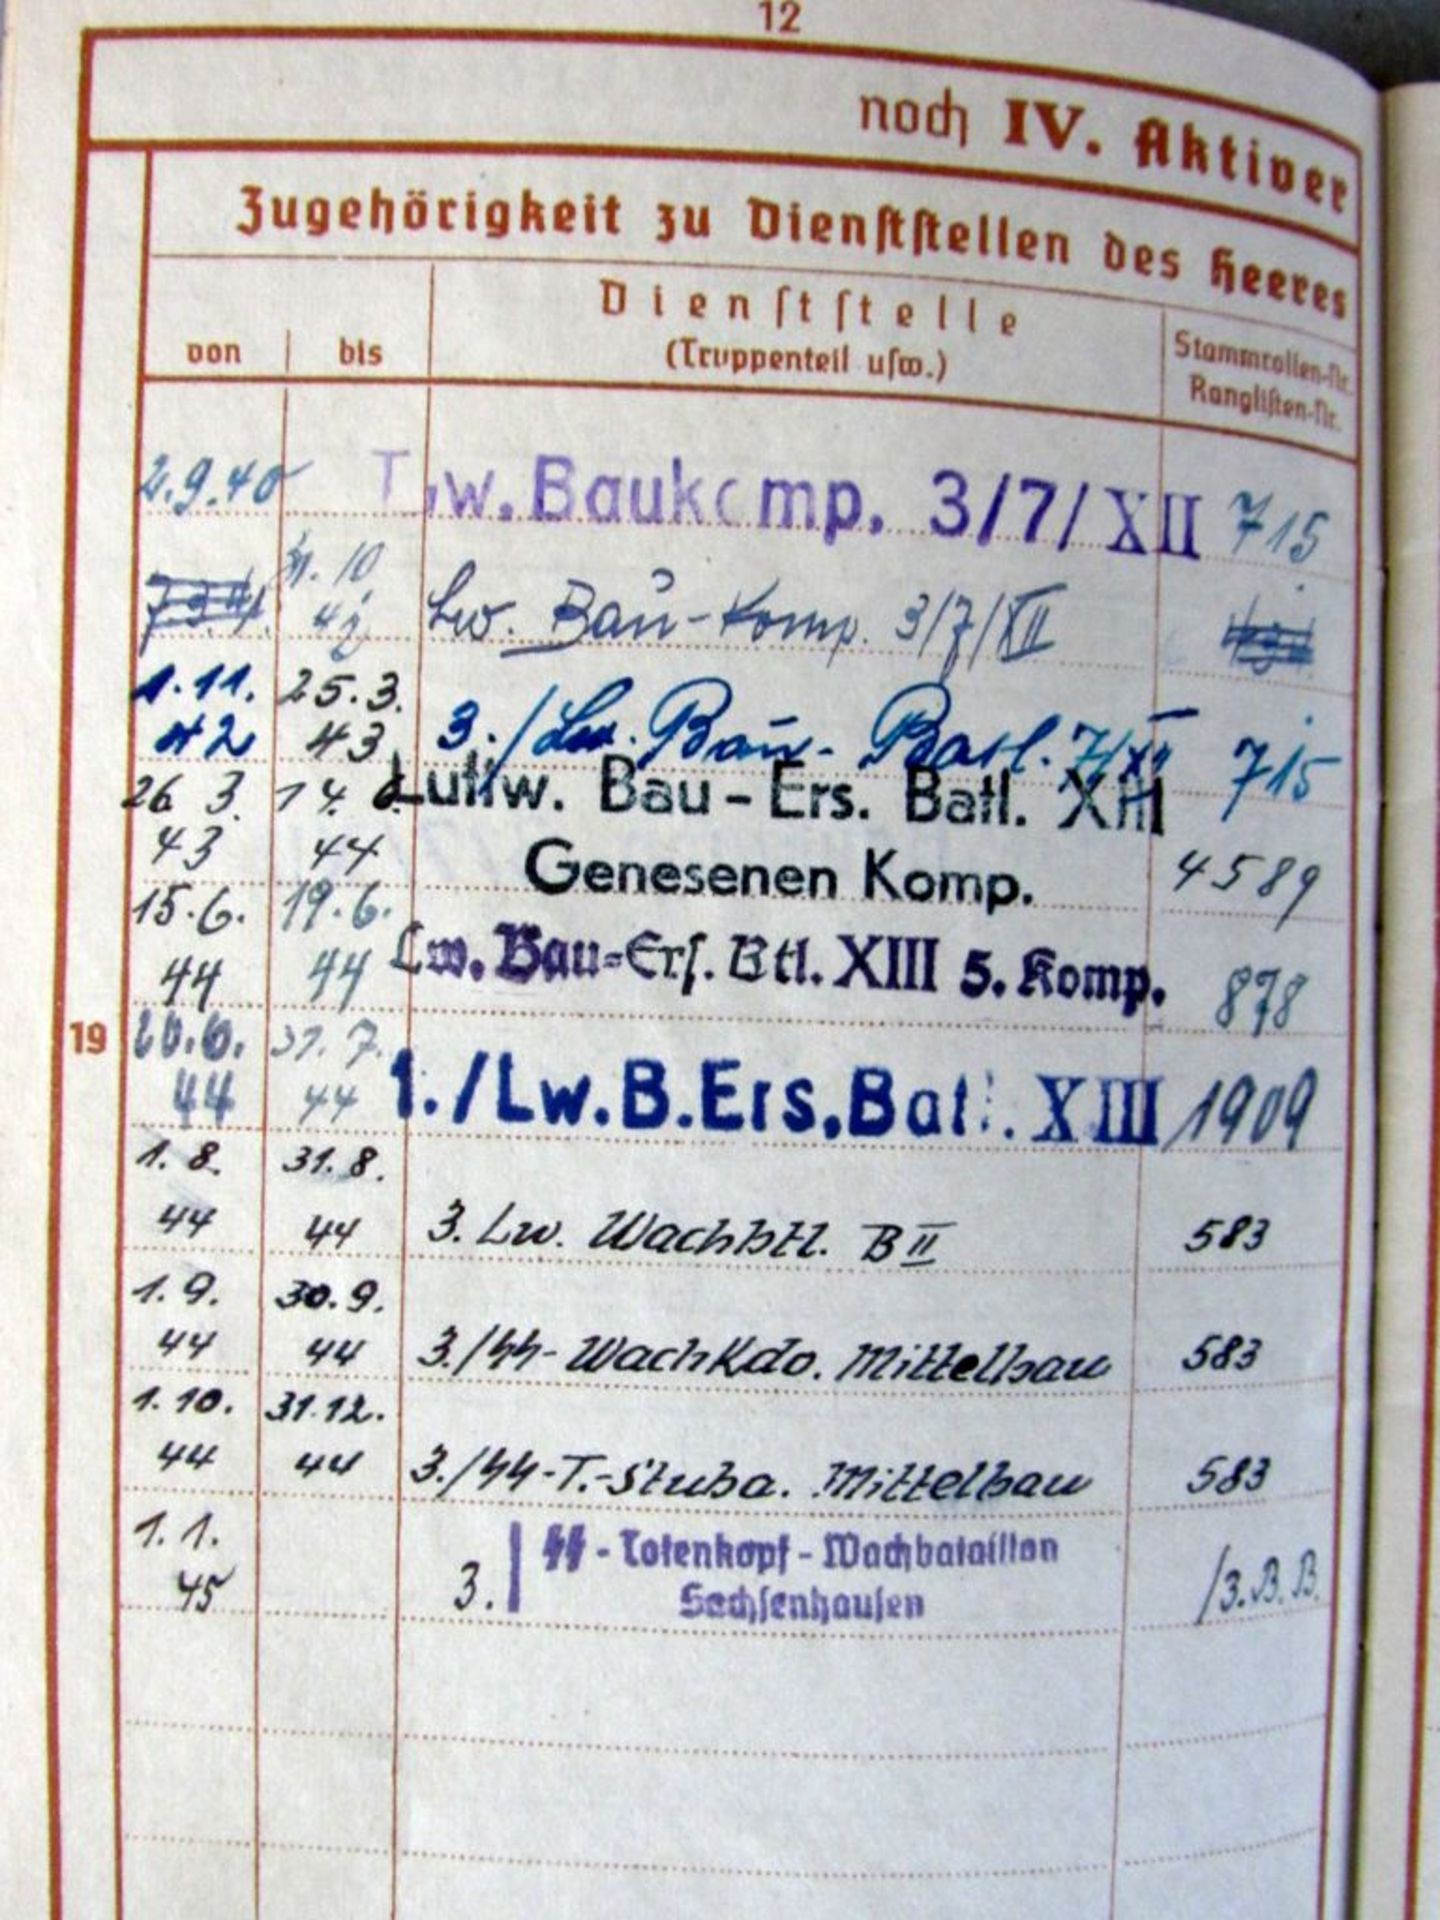 12
noch IV. Aktiver
Zugehörigkeit zu Dienststellen des Heeres
von bis Dienststelle (Truppenteil usw.) Stammrollen-Nr. Ranglisten-Nr.
2.9.40 Lw. Baukomp. 3/7/XII 715
31.10 42 Lw. Bau-Komp. 3/7/XII
1.11. 42 25.3. 43 3./Lw. Bau-Batl. 7/XII 715
26 3. 43 14. 6. 44 Luftw. Bau-Ers. Batl. XIII
Genesenen Komp. 4589
15.6. 44 19.6. 44 Lw. Bau-Ers. Btl. XIII 5. Komp. 878
19
20.6. 44 31.7. 44 1./Lw.B.Ers.Batl. XIII 1909
1.8. 44 31.8. 44 3. Lw. Wachbtl. B II 583
1.9. 44 30.9. 44 3./SS-WachKdo. Mittelbau 583
1.10. 44 31.12. 44 3./SS-T.-Stuba. Mittelbau 583
1.1. 45 3./ SS-Totenkopf-Wachbataillon
Sachsenhausen /3.B.B.